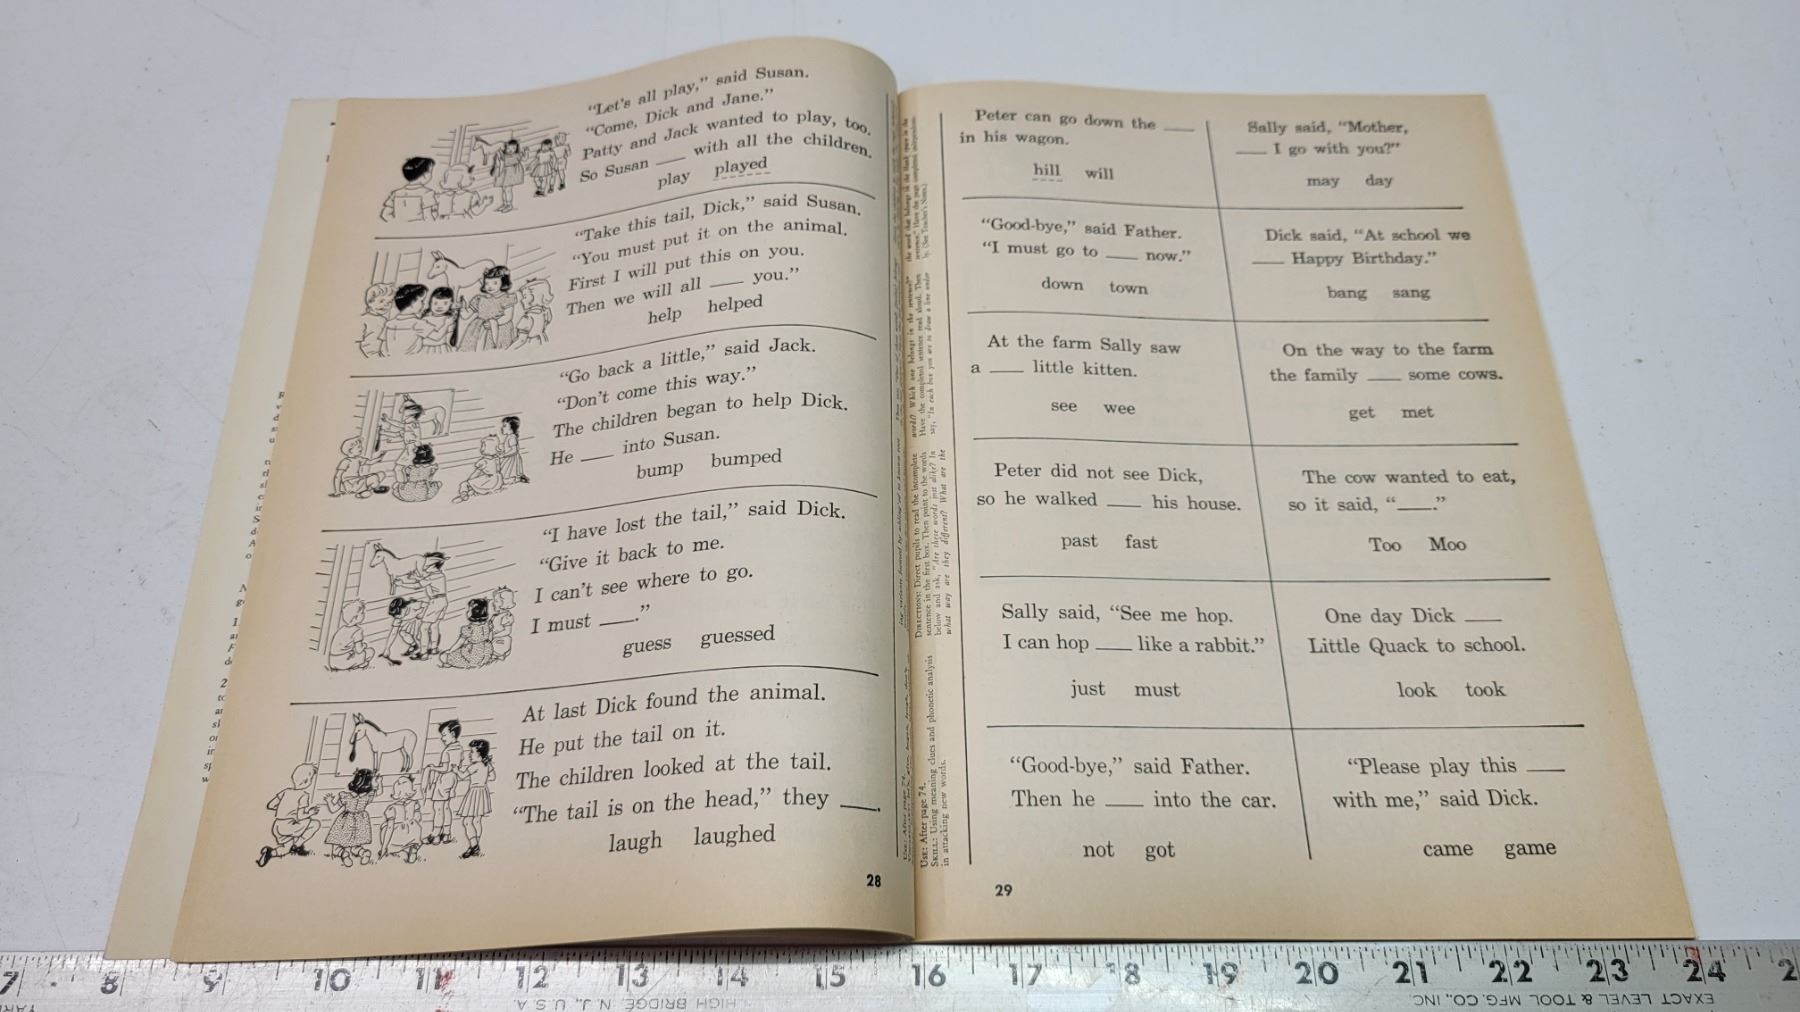 "Let's all play," said Susan.
"Come, Dick and Jane."
Patty and Jack wanted to play, too.
So Susan ___ with all the children.
play played
"Take this tail, Dick," said Susan.
"You must put it on the animal.
First I will put this on you.
Then we will all ___ you."
help helped
"Go back a little," said Jack.
"Don't come this way."
The children began to help Dick.
He ___ into Susan.
bump bumped
"I have lost the tail," said Dick.
"Give it back to me.
I can't see where to go.
I must ___."
guess guessed
At last Dick found the animal.
He put the tail on it.
The children looked at the tail.
"The tail is on the head," they ___.
laugh laughed
28
USE: After page 74.
SKILL: Using meaning clues and phonetic analysis
in attacking new words.
DIRECTIONS: Direct pupils to read the incomplete
sentence in the first box. Then point to the words
below and ask, "Are these words just alike? In
what way are they different? What are the
words? Which one belongs in the sentence?"
Have the completed sentence read aloud. Then
say, "In each box you are to draw a line under
Peter can go down the ___
in his wagon.
hill will
Sally said, "Mother,
___ I go with you?"
may day
"Good-bye," said Father.
"I must go to ___ now."
down town
Dick said, "At school we
___ Happy Birthday."
bang sang
At the farm Sally saw
a ___ little kitten.
see wee
On the way to the farm
the family ___ some cows.
get met
Peter did not see Dick,
so he walked ___ his house.
past fast
The cow wanted to eat,
so it said, "___."
Too Moo
Sally said, "See me hop.
I can hop ___ like a rabbit."
just must
One day Dick ___
Little Quack to school.
look took
"Good-bye," said Father.
Then he ___ into the car.
not got
"Please play this ___
with me," said Dick.
came game
29
7 8 9 10 11 12 13 14 15 16 17 18 19 20 21 22 23 24
HIGH BRIDGE, N.J., U.S.A
EXACT LEVEL & TOOL MFG. CO., INC.